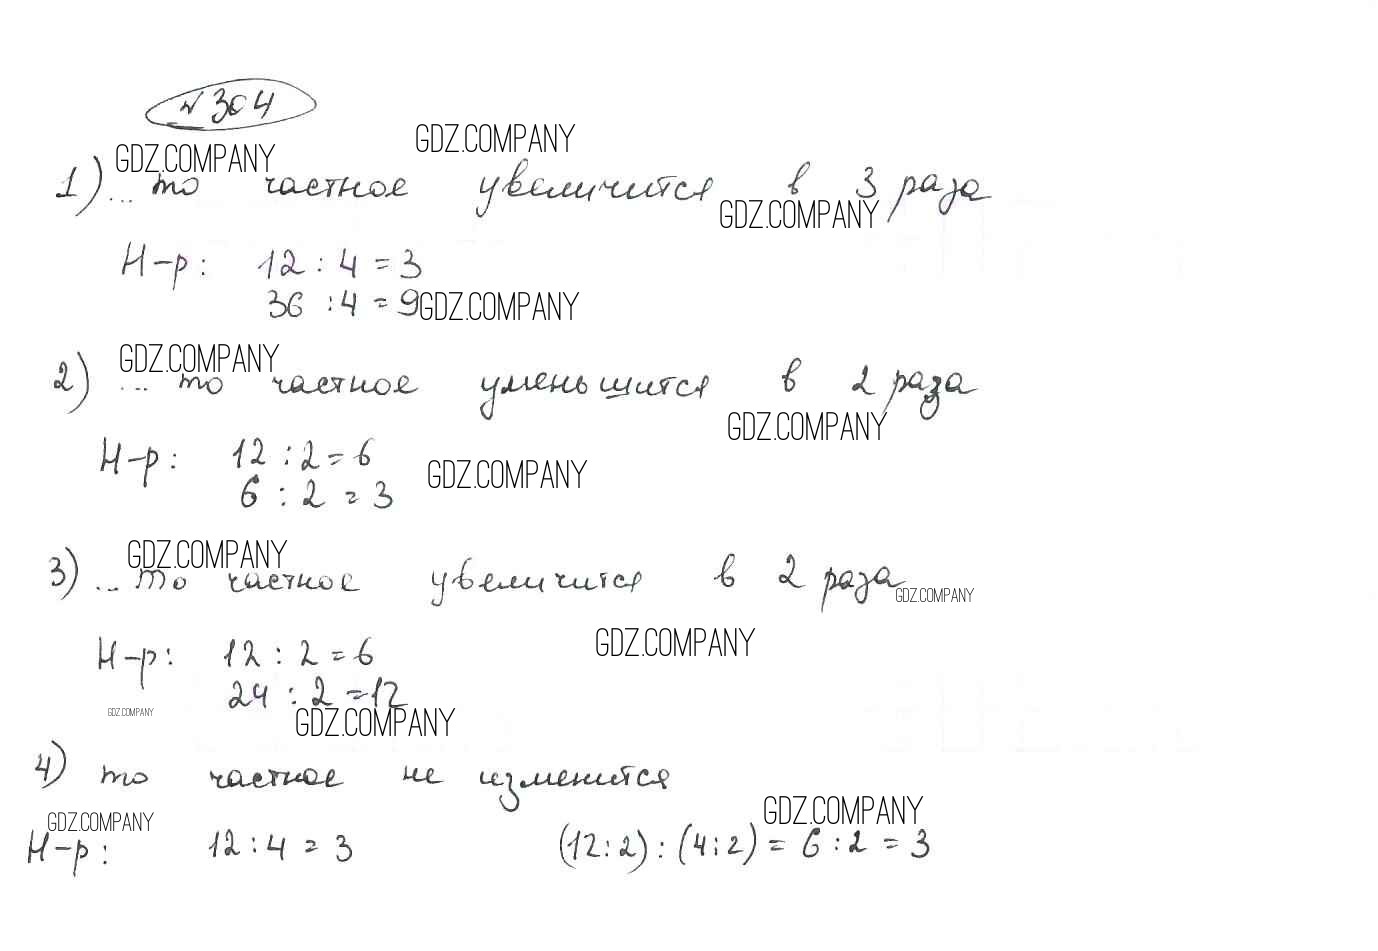 № 304
GDZ.COMPANY
GDZ.COMPANY
1) ... то частное увеличится в 3 раза
GDZ.COMPANY
Н-р: 12 : 4 = 3
36 : 4 = 9
GDZ.COMPANY
GDZ.COMPANY
2) ... то частное уменьшится в 2 раза
GDZ.COMPANY
Н-р: 12 : 2 = 6
GDZ.COMPANY
6 : 2 = 3
GDZ.COMPANY
3) ... то частное увеличится в 2 раза
GDZ.COMPANY
GDZ.COMPANY
Н-р: 12 : 2 = 6
24 : 2 = 12
GDZ.COMPANY
GDZ.COMPANY
4) то частное не изменится
GDZ.COMPANY
GDZ.COMPANY
Н-р: 12 : 4 = 3 (12 : 2) : (4 : 2) = 6 : 2 = 3